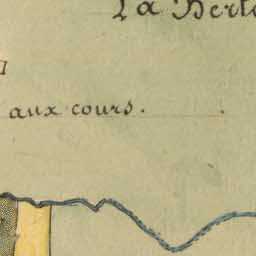 La Berte
aux cours.